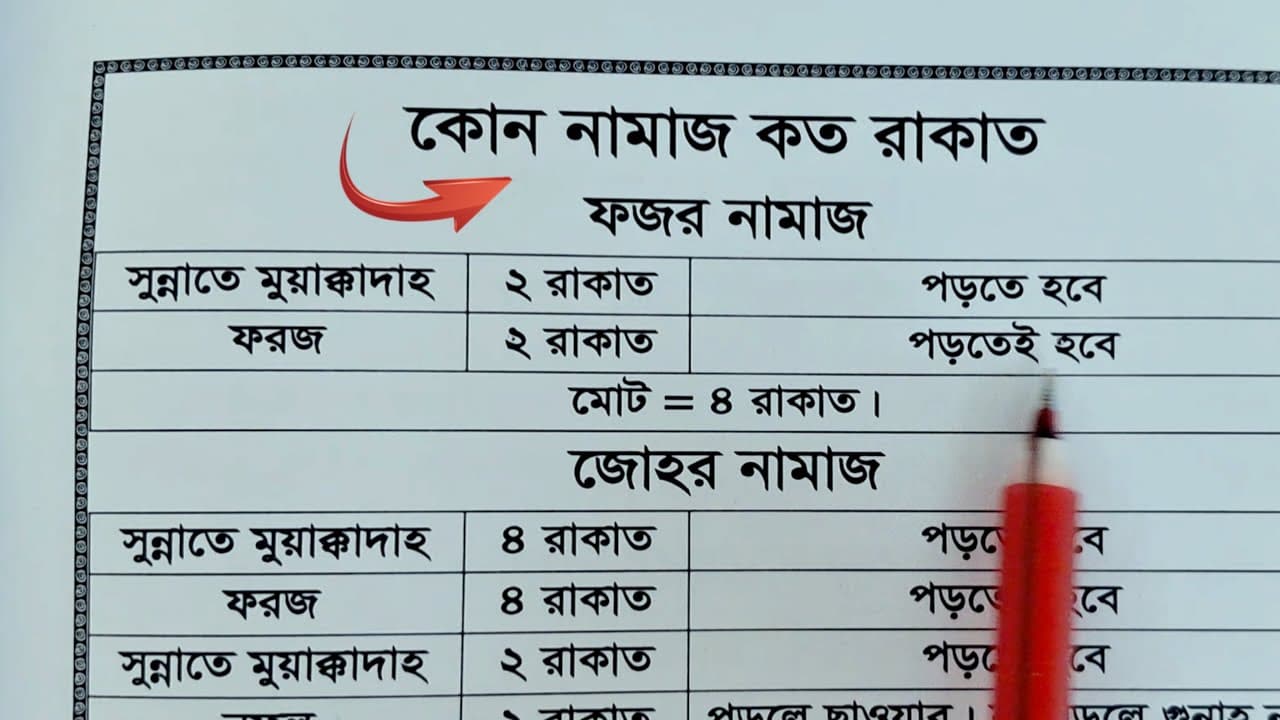 কোন নামাজ কত রাকাত
ফজর নামাজ
সুন্নাতে মুয়াক্কাদাহ ২ রাকাত পড়তে হবে
ফরজ ২ রাকাত পড়তেই হবে
মোট = ৪ রাকাত।
জোহর নামাজ
সুন্নাতে মুয়াক্কাদাহ ৪ রাকাত
ফরজ ৪ রাকাত
সুন্নাতে মুয়াক্কাদাহ ২ রাকাত
রাকাত পড়লে ছাওয়াব।